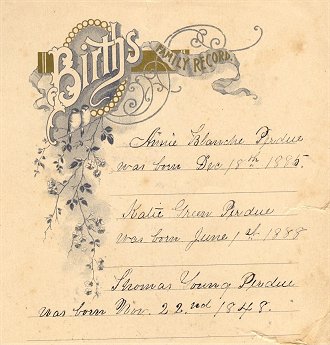 Births
FAMILY RECORD.
Annie Blanche Perdue
was born Dec 18th 1885
Katie Green Perdue
was born June 1st 1888
Thomas Young Perdue
was born Nov. 22nd 1848.